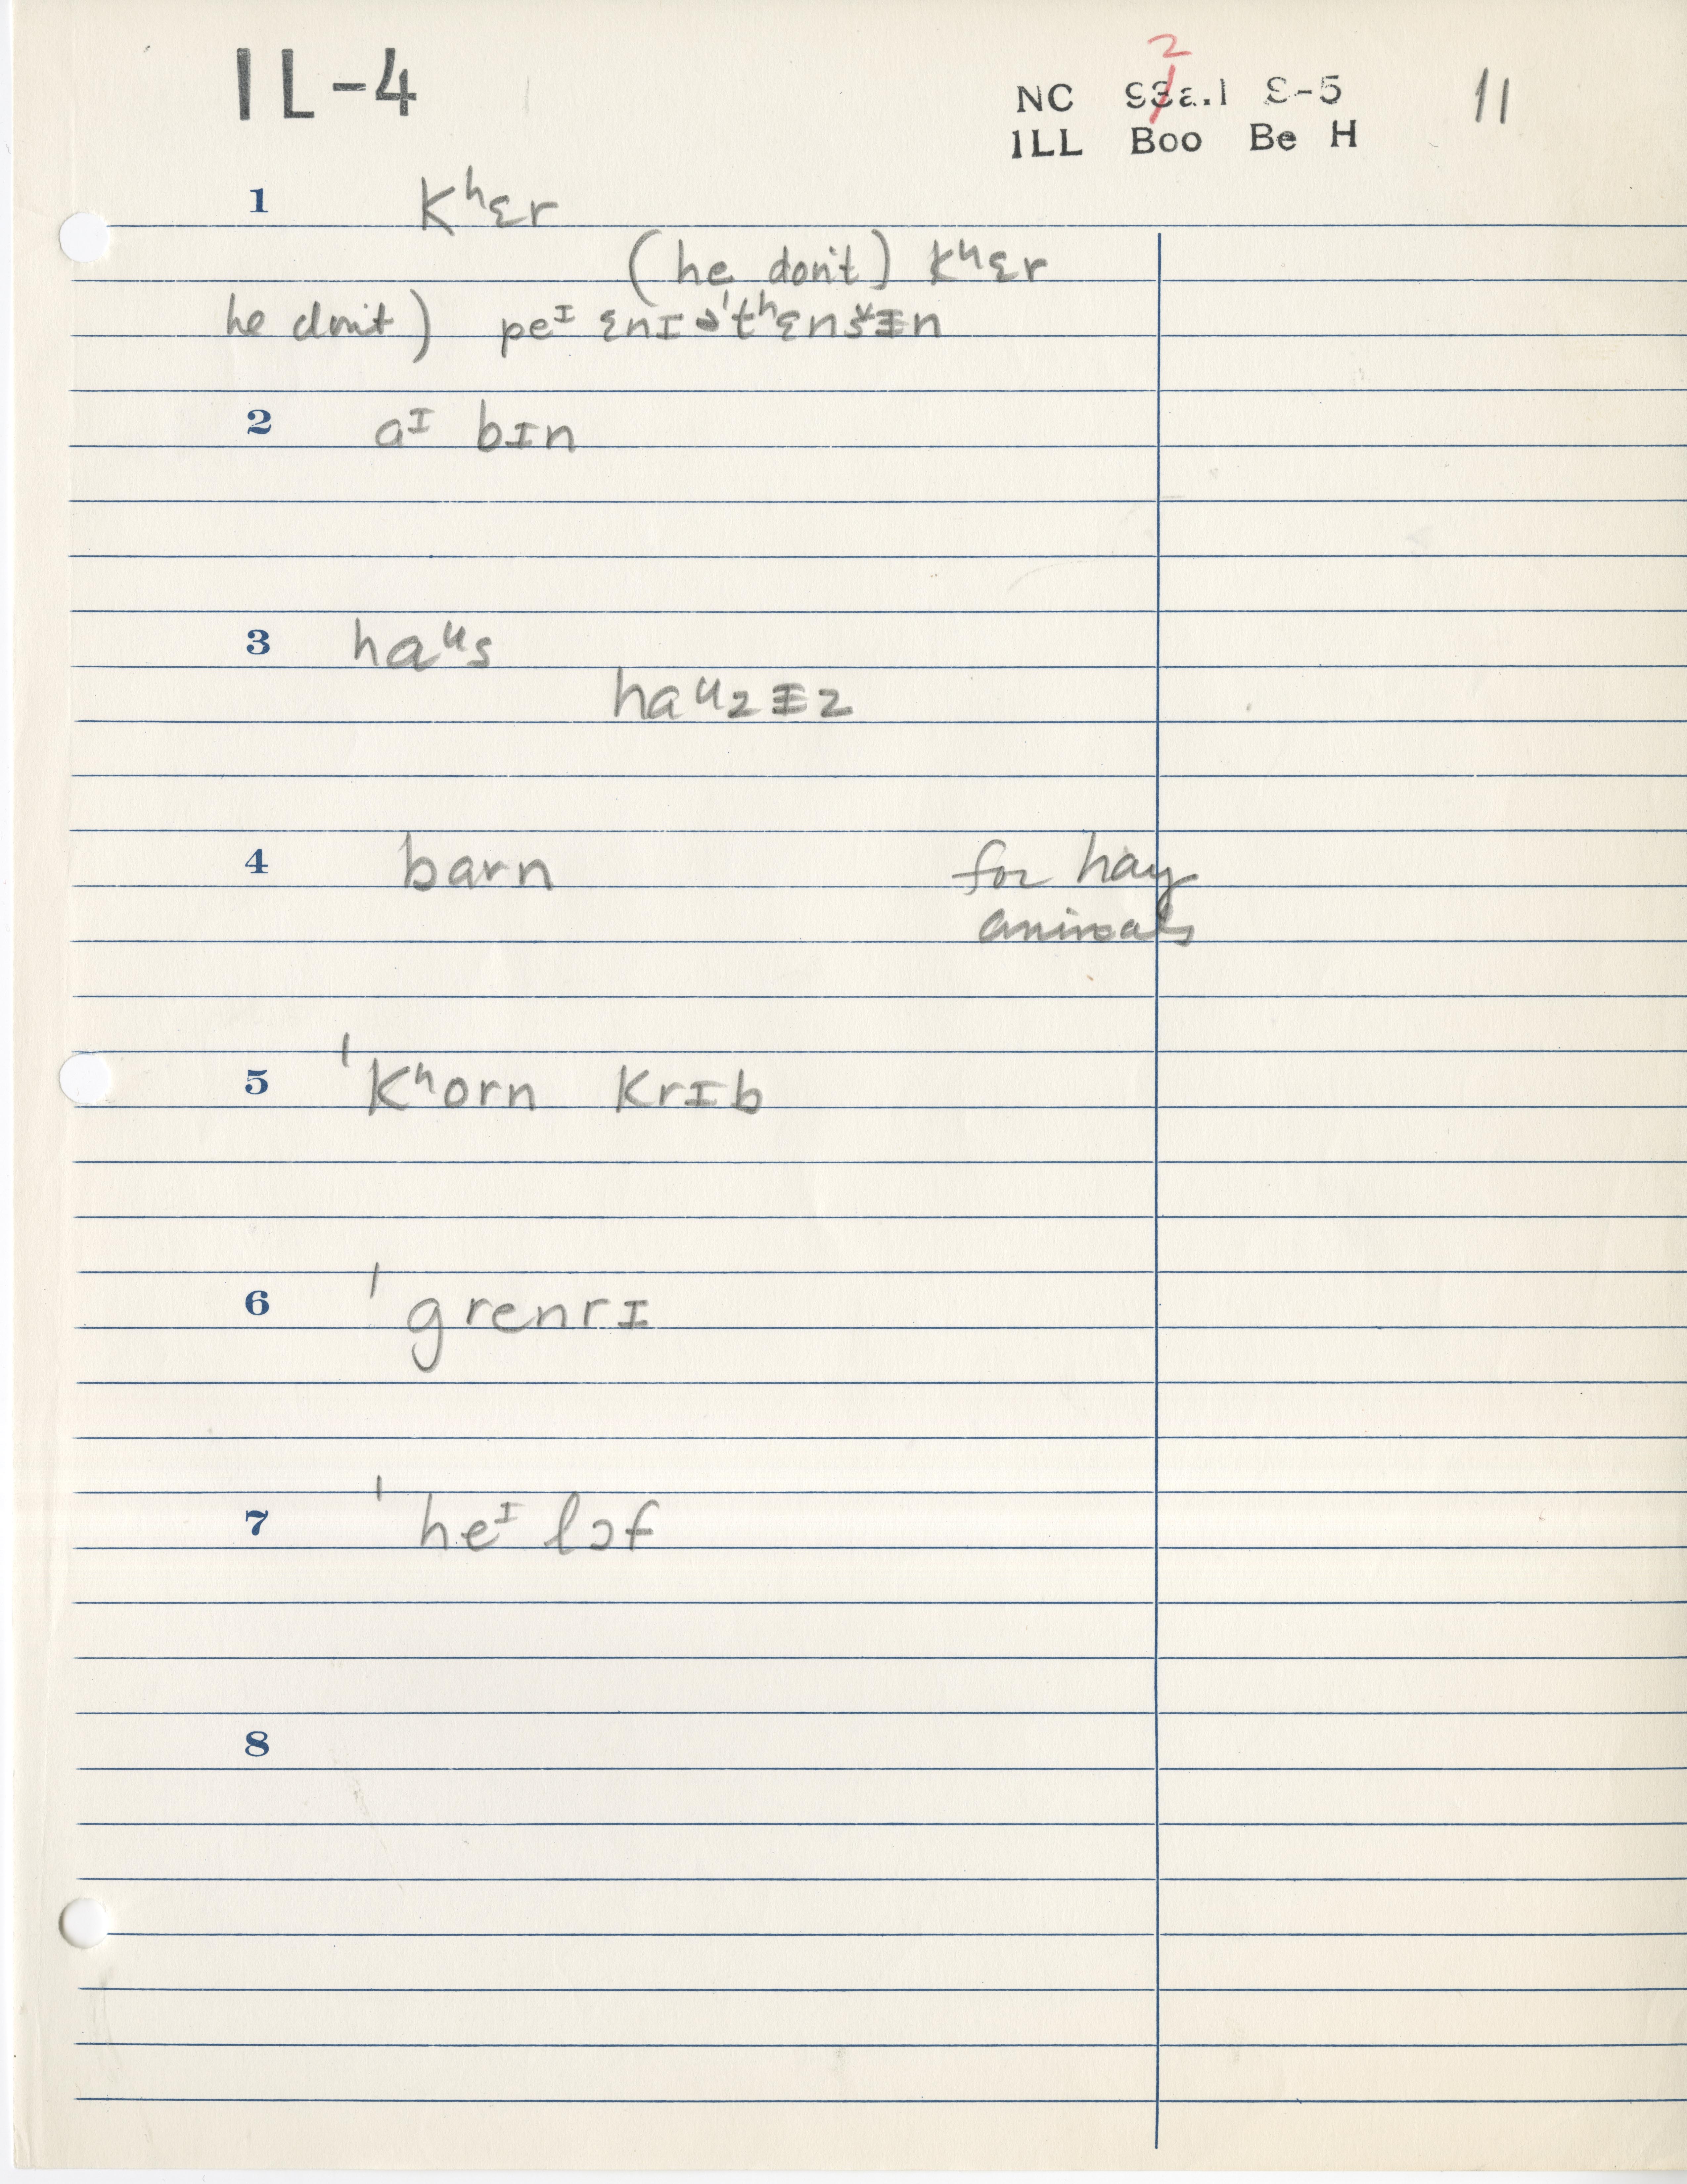 IL-4
2
NC 93a.1 S-5 11
ILL Boo Be H
1 kʰɛr
(he don't) kʰɛr
he don't) peᴵ ɛnɪ ə'tʰɛnšɨn
2 aᴵ bɪn
3 haᵘs
haᵘzɨz
4 barn for hay
animals
5 'kʰorn krɪb
6 'grenrɪ
7 'heᴵ lɔf
8